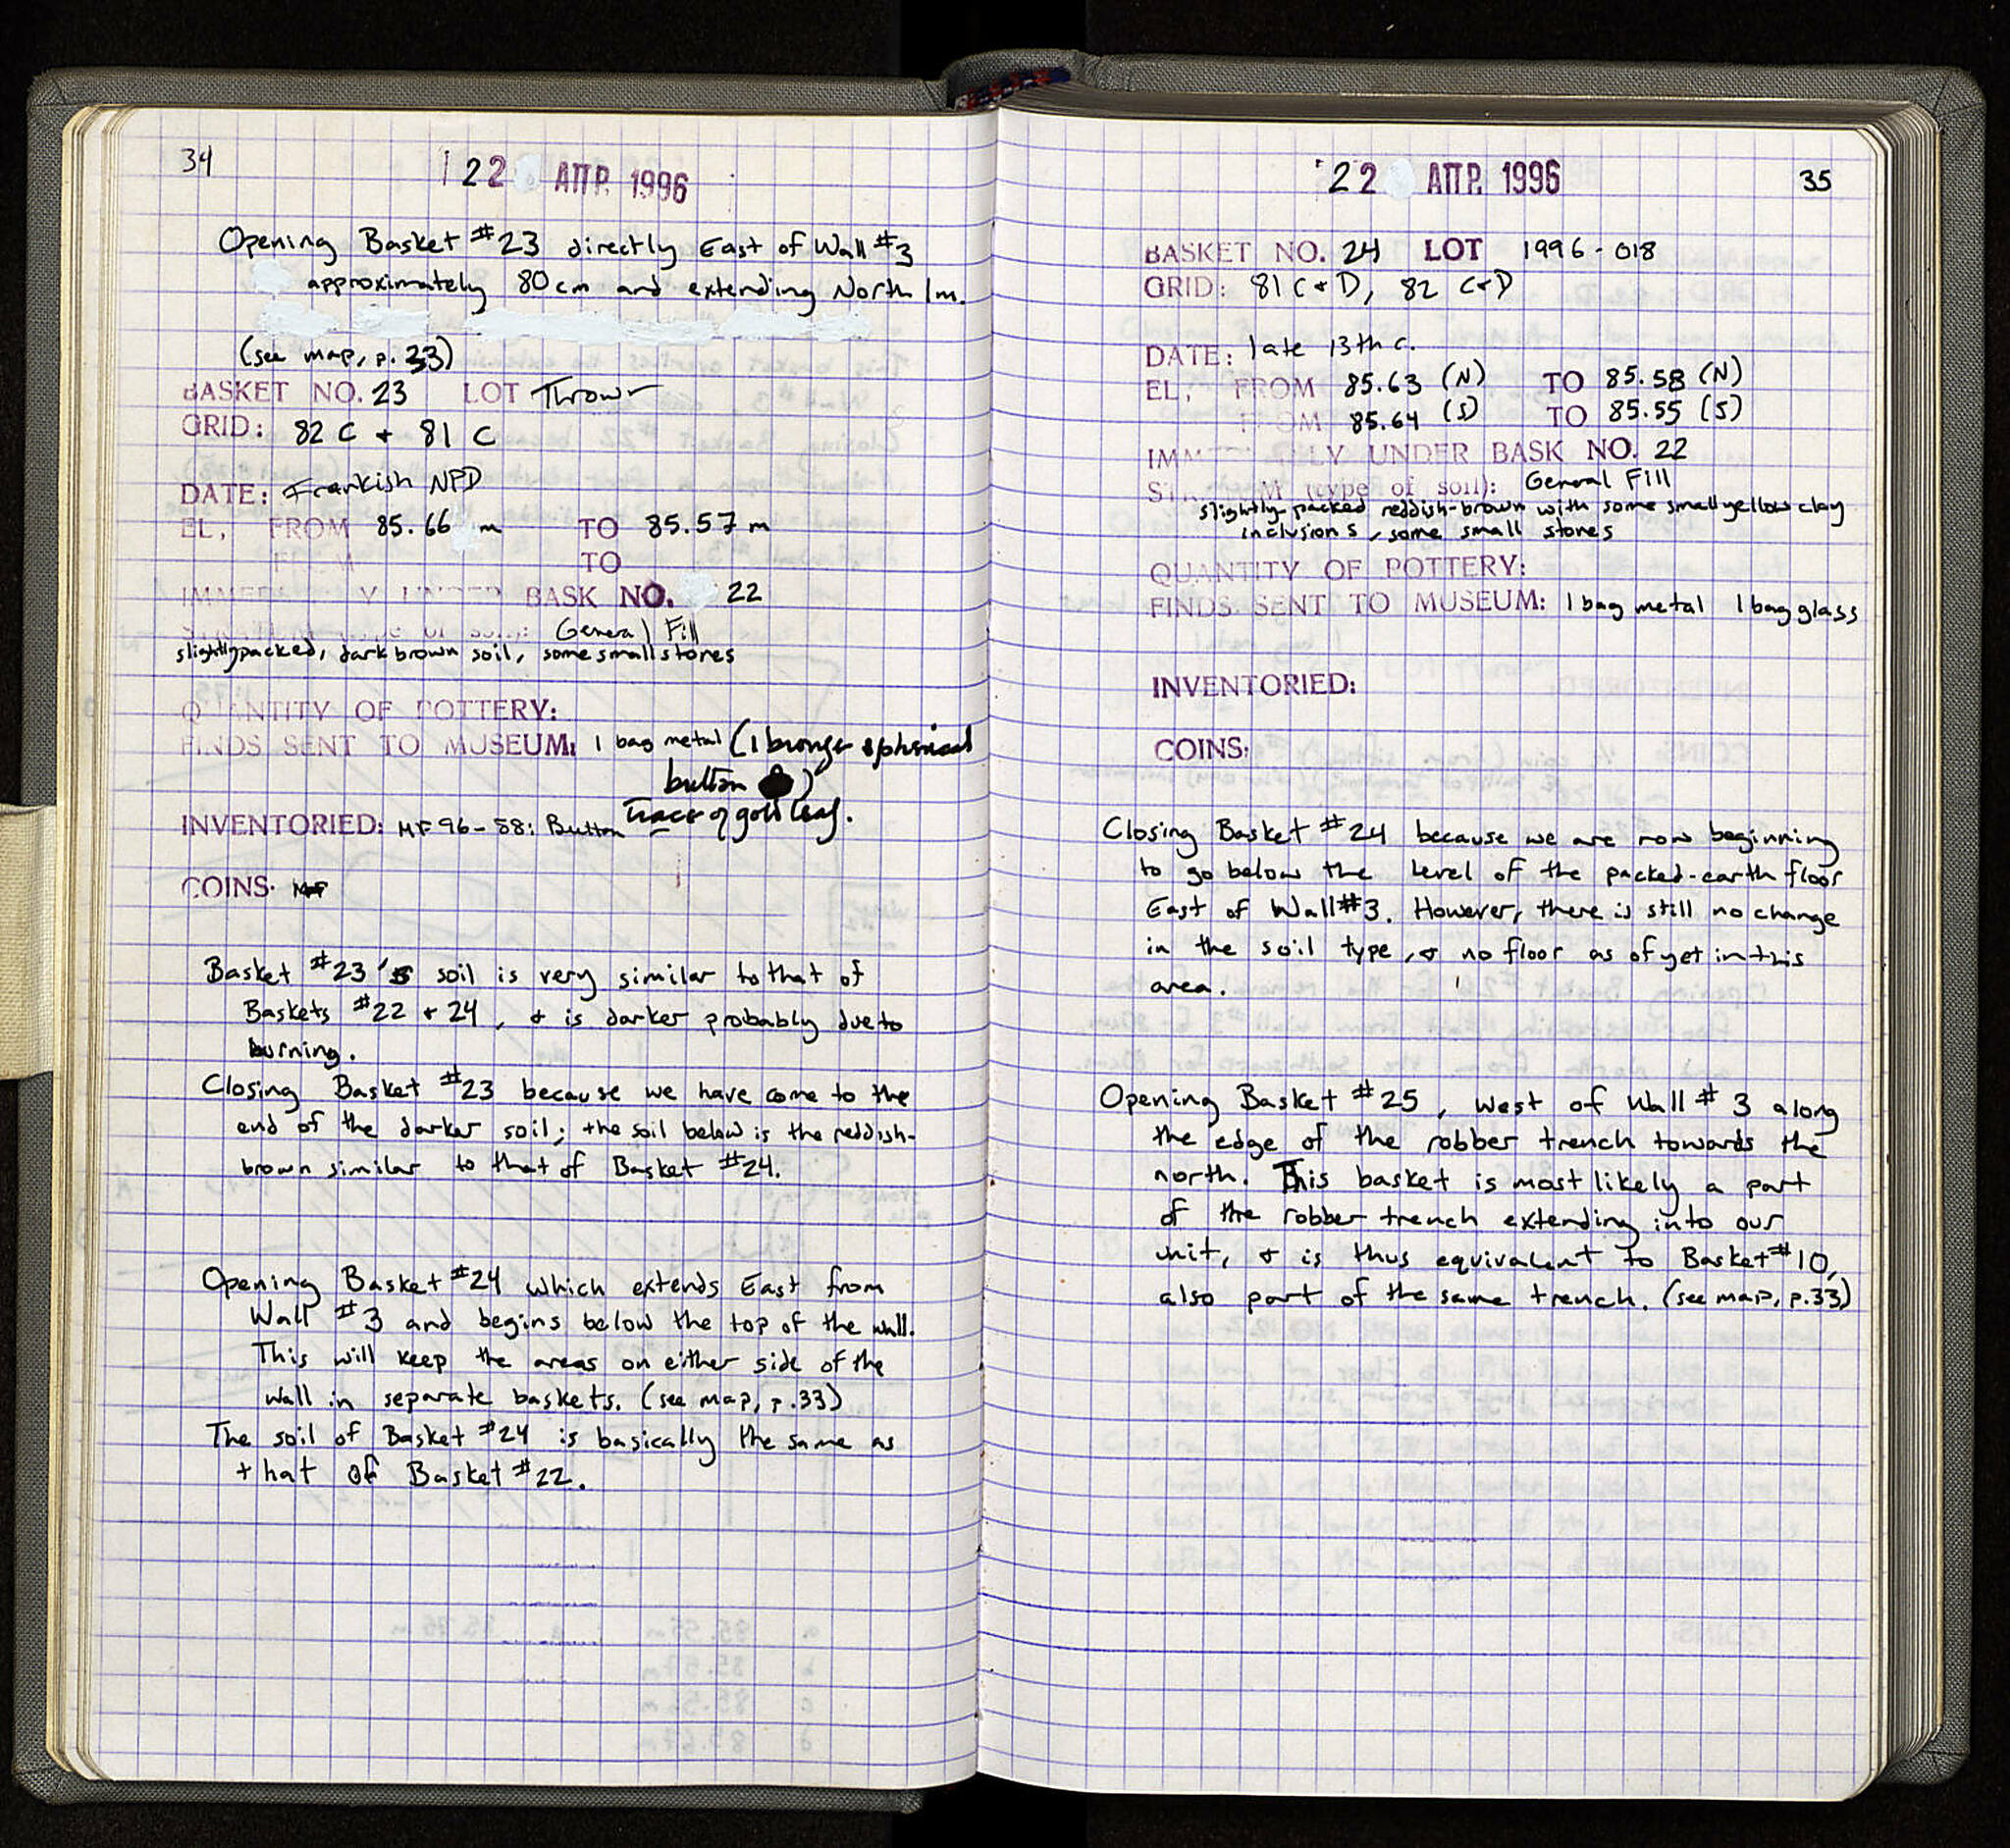 34
22 ΑΠΡ. 1996
Opening Basket #23 directly East of Wall #3
approximately 80cm and extending North 1m.
(see map, p. 33)
BASKET NO. 23 LOT Thrown
GRID: 82 C + 81 C
DATE: Frankish NPD
EL, FROM 85.66 m TO 85.57 m
FROM TO
IMMEDIATELY UNDER BASK NO. 22
STRATUM (type of soil): General Fill
slightly packed, dark brown soil, some small stones
QUANTITY OF POTTERY:
FINDS SENT TO MUSEUM: 1 bag metal (1 bronze spherical
button )
Trace of gold leaf.
INVENTORIED: MF 96-58: Button
COINS: MF
Basket #23's soil is very similar to that of
Baskets #22 + 24, + is darker probably due to
burning.
Closing Basket #23 because we have come to the
end of the darker soil; the soil below is the reddish-
brown similar to that of Basket #24.
Opening Basket #24 which extends East from
Wall #3 and begins below the top of the wall.
This will keep the areas on either side of the
wall in separate baskets. (see map, p.33)
The soil of Basket #24 is basically the same as
that of Basket #22.
22 ΑΠΡ. 1996
35
BASKET NO. 24 LOT 1996-018
GRID: 81 C + D, 82 C+D
DATE: late 13th c.
EL, FROM 85.63 (N) TO 85.58 (N)
FROM 85.64 (S) TO 85.55 (S)
IMMEDIATELY UNDER BASK NO. 22
STRATUM (type of soil): General Fill
slightly packed reddish-brown with some small yellow clay
inclusions, some small stones
QUANTITY OF POTTERY:
FINDS SENT TO MUSEUM: 1 bag metal 1 bag glass
INVENTORIED:
COINS:
Closing Basket #24 because we are now beginning
to go below the level of the packed-earth floor
East of Wall #3. However, there is still no change
in the soil type, + no floor as of yet in this
area.
Opening Basket #25, west of Wall #3 along
the edge of the robber trench towards the
north. This basket is most likely a part
of the robber trench extending into our
unit, + is thus equivalent to Basket #10,
also part of the same trench. (see map, p.33)